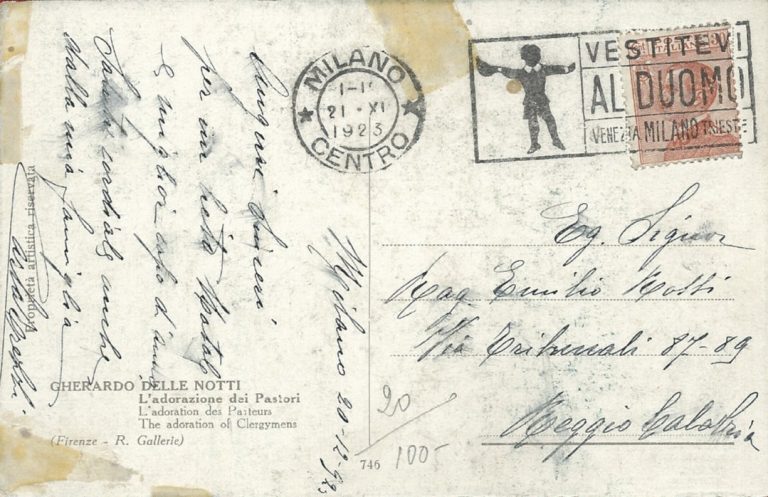 MILANO
21 · XI
1923
CENTRO
VESTITEVI
AL DUOMO
VENEZIA MILANO TRIESTE
Milano 20-12-923
Auguri sinceri
per un lieto Natale
e miglior capo d'anno
Saluti cordiali anche
dalla mia famiglia
Proprietà artistica riservata
GHERARDO DELLE NOTTI
L'adorazione dei Pastori
L'adoration des Pasteurs
The adoration of Clergymens
(Firenze - R. Gallerie)
746
20
100-
Eg. Signor
Rag Emilio
Via Tribunali 87-89
Reggio Calabria